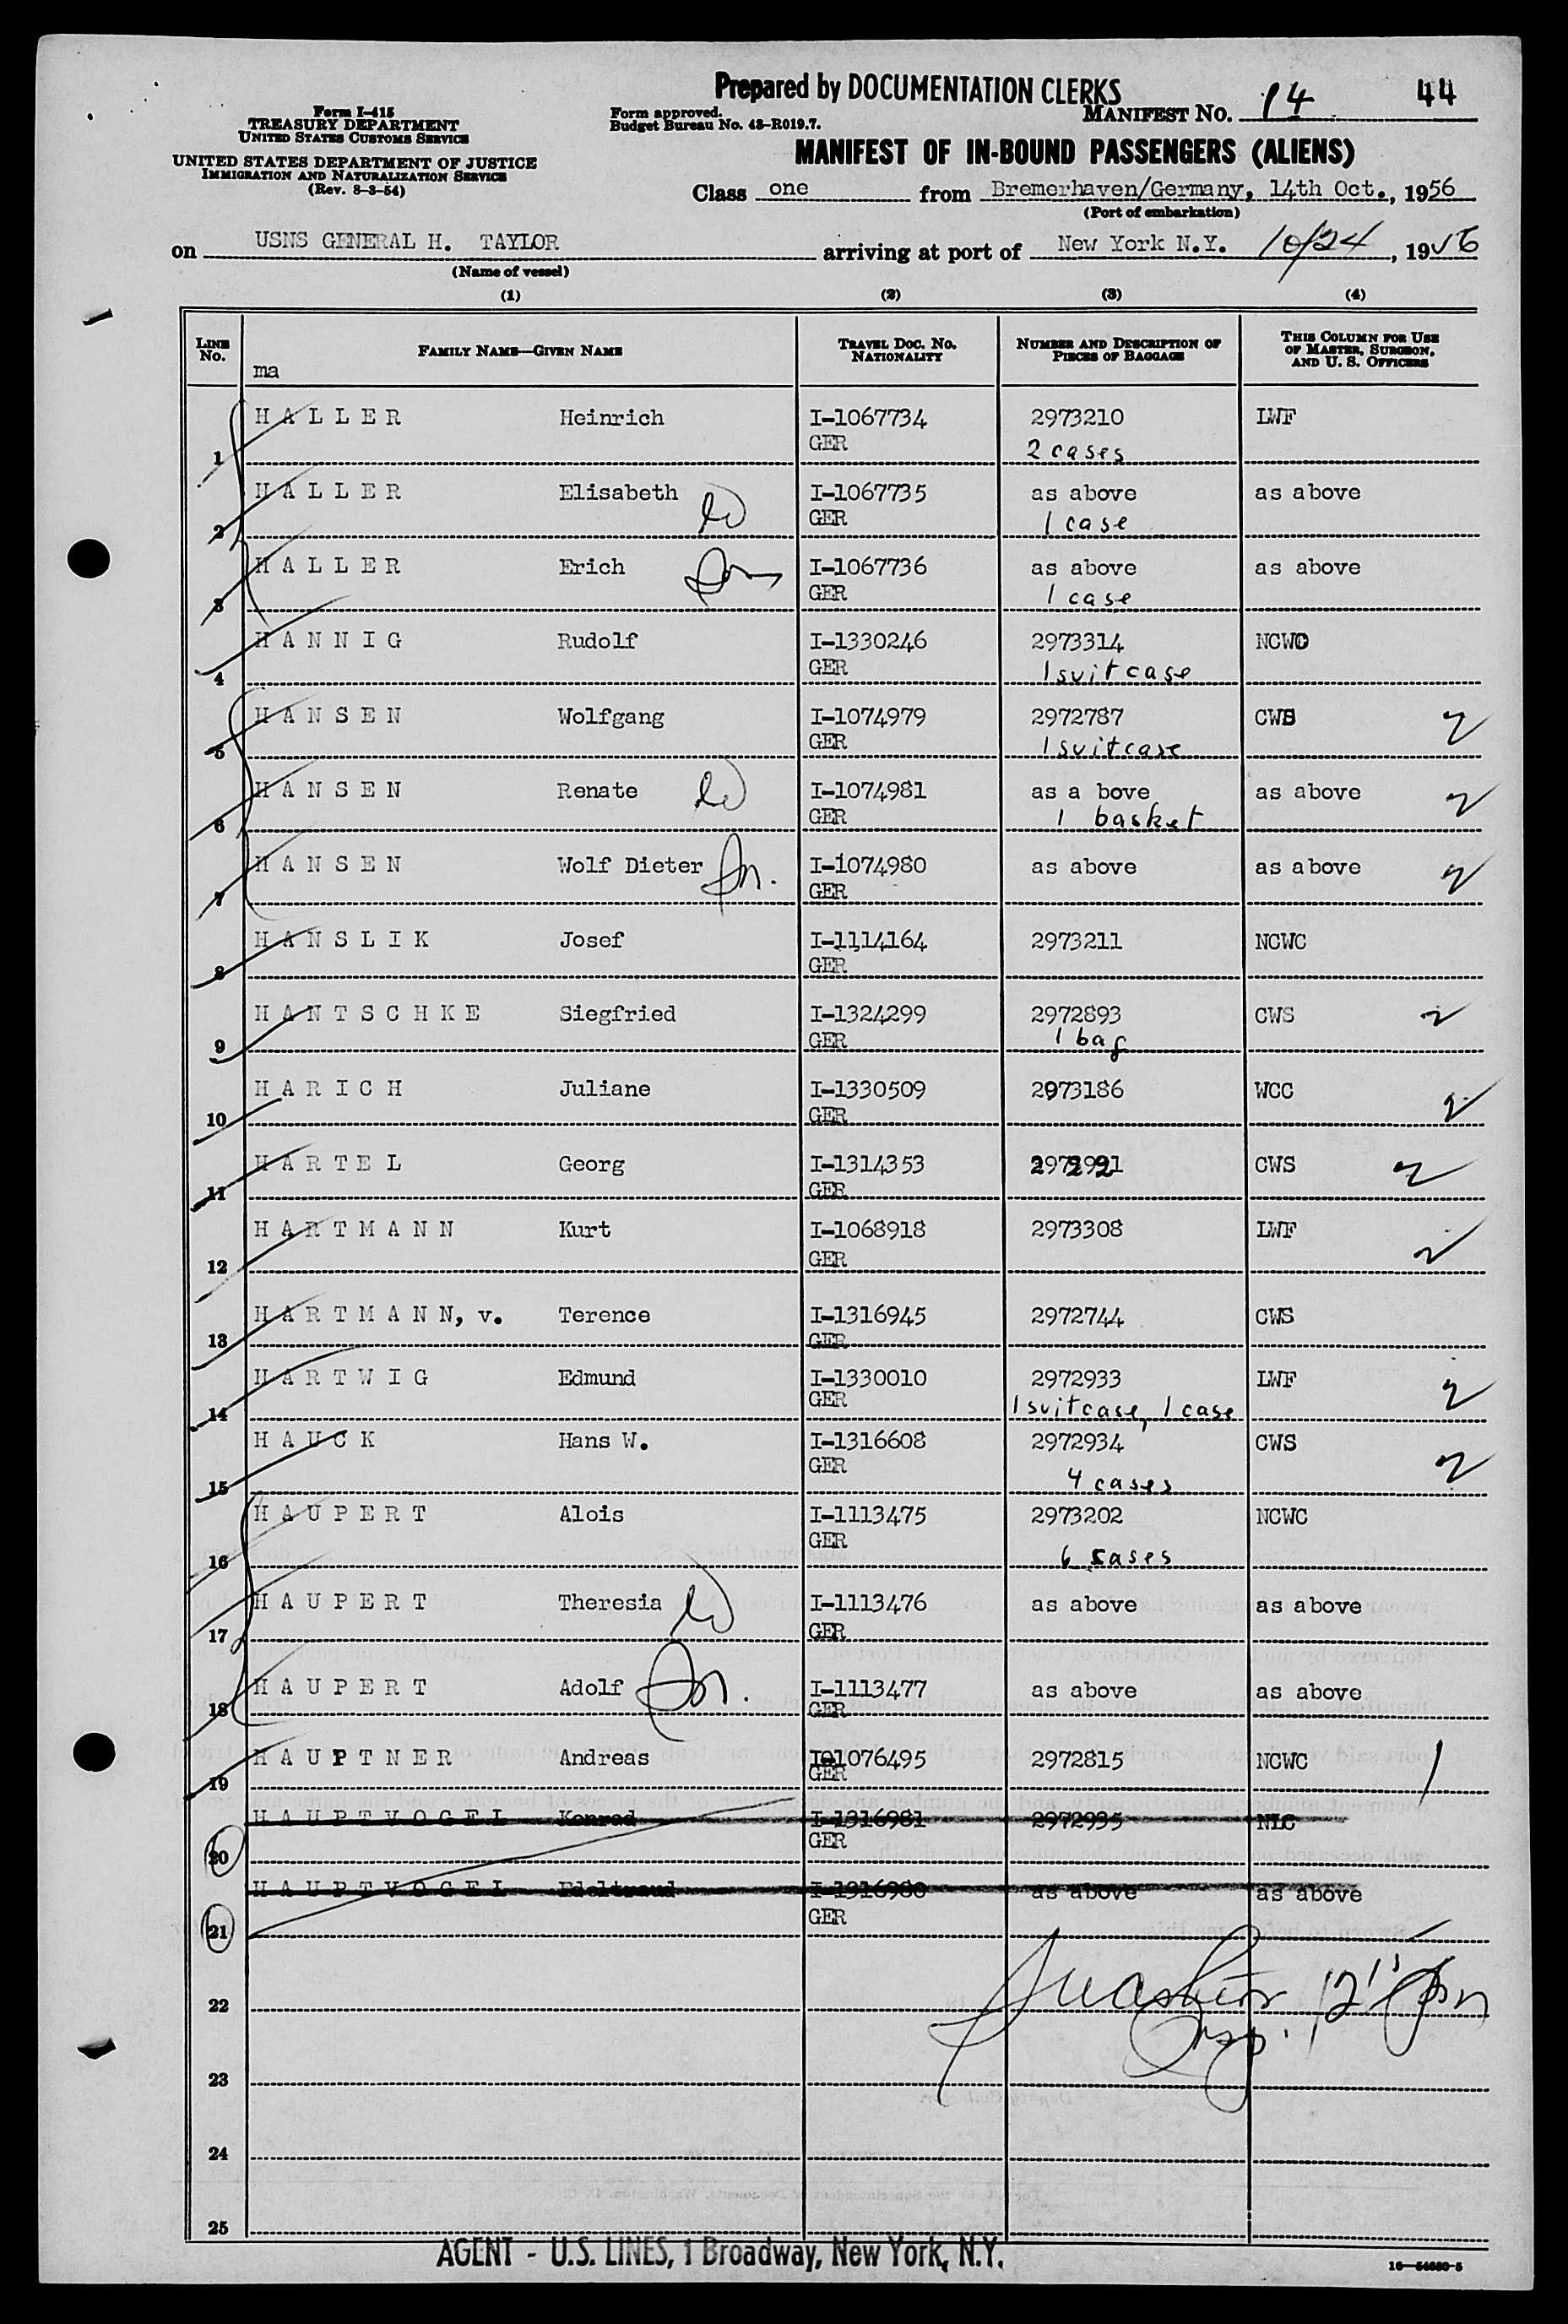 Prepared by DOCUMENTATION CLERKS
44
Form I-415
TREASURY DEPARTMENT
UNITED STATES CUSTOMS SERVICE
UNITED STATES DEPARTMENT OF JUSTICE
IMMIGRATION AND NATURALIZATION SERVICE
(Rev. 8-3-54)
Form approved.
Budget Bureau No. 43-R019.7.
MANIFEST NO. 14
MANIFEST OF IN-BOUND PASSENGERS (ALIENS)
Class one from Bremerhaven/Germany, 14th Oct., 1956
(Port of embarkation)
on USNS GENERAL H. TAYLOR arriving at port of New York N.Y. 10/24, 1956
(Name of vessel)
(1) (2) (3) (4)
LINE NO. FAMILY NAME—GIVEN NAME TRAVEL DOC. NO. NATIONALITY NUMBER AND DESCRIPTION OF PIECES OF BAGGAGE THIS COLUMN FOR USE OF MASTER, SURGEON, AND U. S. OFFICERS
ma
HALLER Heinrich I-1067734 2973210 LWF
1 GER 2 cases
HALLER Elisabeth I-1067735 as above as above
2 GER 1 case
HALLER Erich I-1067736 as above as above
3 GER 1 case
HANNIG Rudolf I-1330246 2973314 NCWC
4 GER 1 suitcase
HANSEN Wolfgang I-1074979 2972787 CWS
5 GER 1 suitcase
HANSEN Renate I-1074981 as a bove as above
6 GER 1 basket
HANSEN Wolf Dieter I-1074980 as above as above
7 GER
HANSLIK Josef I-1114164 2973211 NCWC
8 GER
HANTSCHKE Siegfried I-1324299 2972893 CWS
9 GER 1 bag
HARICH Juliane I-1330509 2973186 WCC
10 GER
HARTEL Georg I-1314353 CWS
11 GER
HARTMANN Kurt I-1068918 2973308 LWF
12 GER
HARTMANN, v. Terence I-1316945 2972744 CWS
13 GER
HARTWIG Edmund I-1330010 2972933 LWF
14 GER 1 suitcase, 1 case
HAUCK Hans W. I-1316608 2972934 CWS
15 GER 4 cases
HAUPERT Alois I-1113475 2973202 NCWC
16 GER 6 cases
HAUPERT Theresia I-1113476 as above as above
17 GER
HAUPERT Adolf I-1113477 as above as above
18 GER
HAUPTNER Andreas I-1076495 2972815 NCWC
19 GER
HAUPTVOGEL Konrad I-1316981 2972935
20 GER
HAUPTVOGEL Edeltraud as above as above
21 GER
22
23
24
25
AGENT - U.S. LINES, 1 Broadway, New York, N.Y.